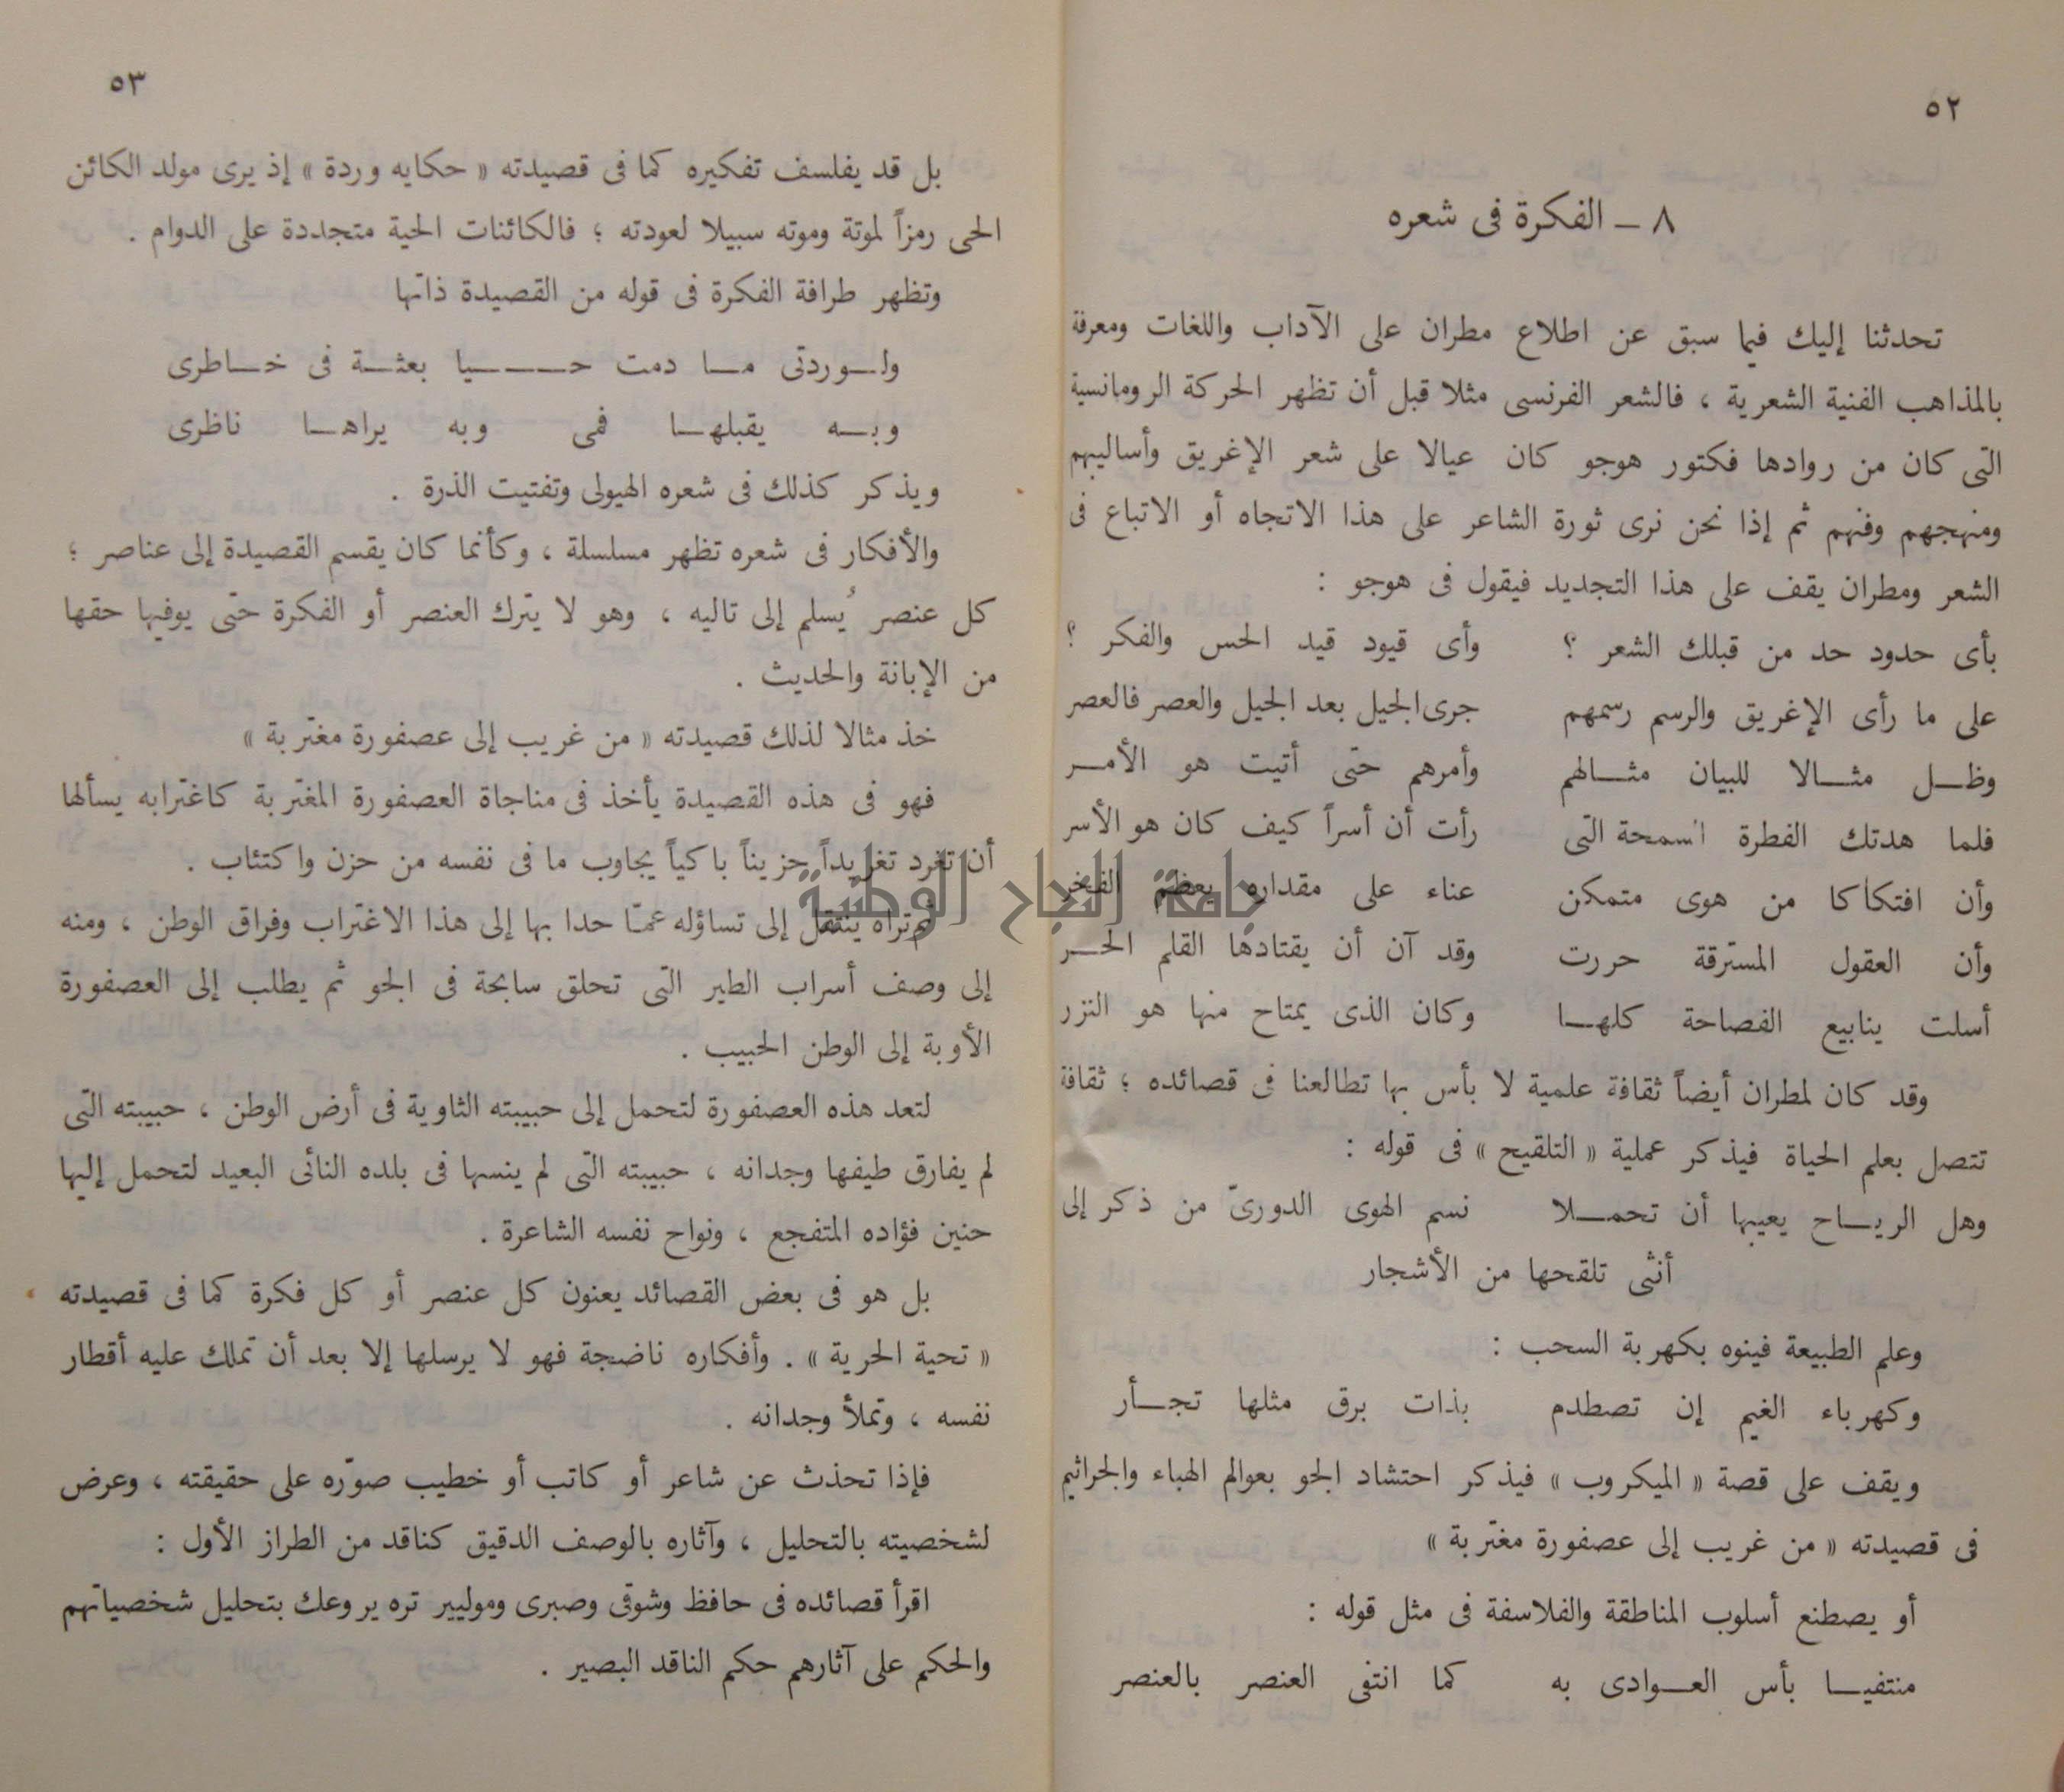 ٥٢
٨ ــ الفكرة فى شعره
تحدثنا إليك فيما سبق عن اطلاع مطران على الآداب واللغات ومعرفة
بالمذاهب الفنية الشعرية ، فالشعر الفرنسى مثلا قبل أن تظهر الحركة الرومانسية
التى كان من روادها فكتور هوجو كان عيالا على شعر الإغريق وأساليبهم
ومنهجهم وفنهم ثم إذا نحن نرى ثورة الشاعر على هذا الاتجاه أو الاتباع فى
الشعر ومطران يقف على هذا التجديد فيقول فى هوجو :
بأى حدود حد من قبلك الشعر ؟ وأى قيود قيد الحس والفكر ؟
على ما رأى الإغريق والرسم رسمهم جرى الجيل بعد الجيل والعصر فالعصر
وظـــل مثـــالا للبيان مثـــالهم وأمرهم حتى أتيت هو الأمـــر
فلما هدتك الفطرة السمحة التى رأت أن أسراً كيف كان هو الأسر
وأن افتكاكا من هوى متمكن عناء على مقداره يعظم الفخر
وأن العقول المسترقة حررت وقد آن أن يقتادها القلم الحـــر
أسلت ينابيع الفصاحة كلهـــا وكان الذى يمتاح منها هو النزر
وقد كان لمطران أيضاً ثقافة علمية لا بأس بها تطالعنا فى قصائده ؛ ثقافة
تتصل بعلم الحياة فيذكر عملية « التلقيح » فى قوله :
وهل الريـــاح يعيبها أن تحمـــلا نسم الهوى الدورىّ من ذكر إلى
أنثى تلقحها من الأشجار
وعلم الطبيعة فينوه بكهربة السحب :
وكهرباء الغيم إن تصطدم بذات برق مثلها تجـــأر
ويقف على قصة « الميكروب » فيذكر احتشاد الجو بعوالم الهباء والجراثيم
فى قصيدته « من غريب إلى عصفورة مغتربة »
أو يصطنع أسلوب المناطقة والفلاسفة فى مثل قوله :
منتفيـــا بأس العـــوادى به كما انتفى العنصر بالعنصر
٥٣
بل قد يفلسف تفكيره كما فى قصيدته « حكايه وردة » إذ يرى مولد الكائن
الحى رمزاً لموتة وموته سبيلا لعودته ؛ فالكائنات الحية متجددة على الدوام .
وتظهر طرافة الفكرة فى قوله من القصيدة ذاتها
ولـــوردتى مـــا دمت حـــــيا بعثـــة فى خـــاطرى
وبـــه يقبلهـــا فمى وبه يراهـــا ناظرى
ويذكر كذلك فى شعره الهيولى وتفتيت الذرة .
والأفكار فى شعره تظهر مسلسلة ، وكأنما كان يقسم القصيدة إلى عناصر ؛
كل عنصر يُسلم إلى تاليه ، وهو لا يترك العنصر أو الفكرة حتى يوفيها حقها
من الإبانة والحديث .
خذ مثالا لذلك قصيدته « من غريب إلى عصفورة مغتربة »
فهو فى هذه القصيدة يأخذ فى مناجاة العصفورة المغتربة كاغترابه يسألها
أن تغرد تغريداً حزيناً باكياً يجاوب ما فى نفسه من حزن واكتئاب .
ثم تراه ينتقل إلى تساؤله عمّا حدا بها إلى هذا الاغتراب وفراق الوطن ، ومنه
إلى وصف أسراب الطير التى تحلق سابحة فى الجو ثم يطلب إلى العصفورة
الأوبة إلى الوطن الحبيب .
لتعد هذه العصفورة لتحمل إلى حبيبته الثاوية فى أرض الوطن ، حبيبته التى
لم يفارق طيفها وجدانه ، حبيبته التى لم ينسها فى بلده النائى البعيد لتحمل إليها
حنين فؤاده المتفجع ، ونواح نفسه الشاعرة .
بل هو فى بعض القصائد يعنون كل عنصر أو كل فكرة كما فى قصيدته
« تحية الحرية » . وأفكاره ناضجة فهو لا يرسلها إلا بعد أن تملك عليه أقطار
نفسه ، وتملأ وجدانه .
فإذا تحذث عن شاعر أو كاتب أو خطيب صوّره على حقيقته ، وعرض
لشخصيته بالتحليل ، وآثاره بالوصف الدقيق كناقد من الطراز الأول :
اقرأ قصائده فى حافظ وشوقى وصبرى وموليير تره يروعك بتحليل شخصياتهم
والحكم على آثارهم حكم الناقد البصير .
جامعة النجاح الوطنية